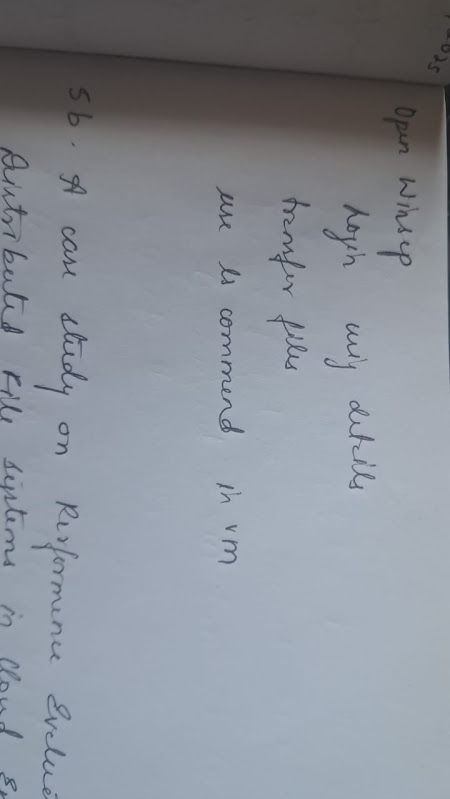 Open Winscp
Login using details
transfer files
use ls command in vm
5b. A case study on Performence Evaluat
Distributed File systems in Cloud En